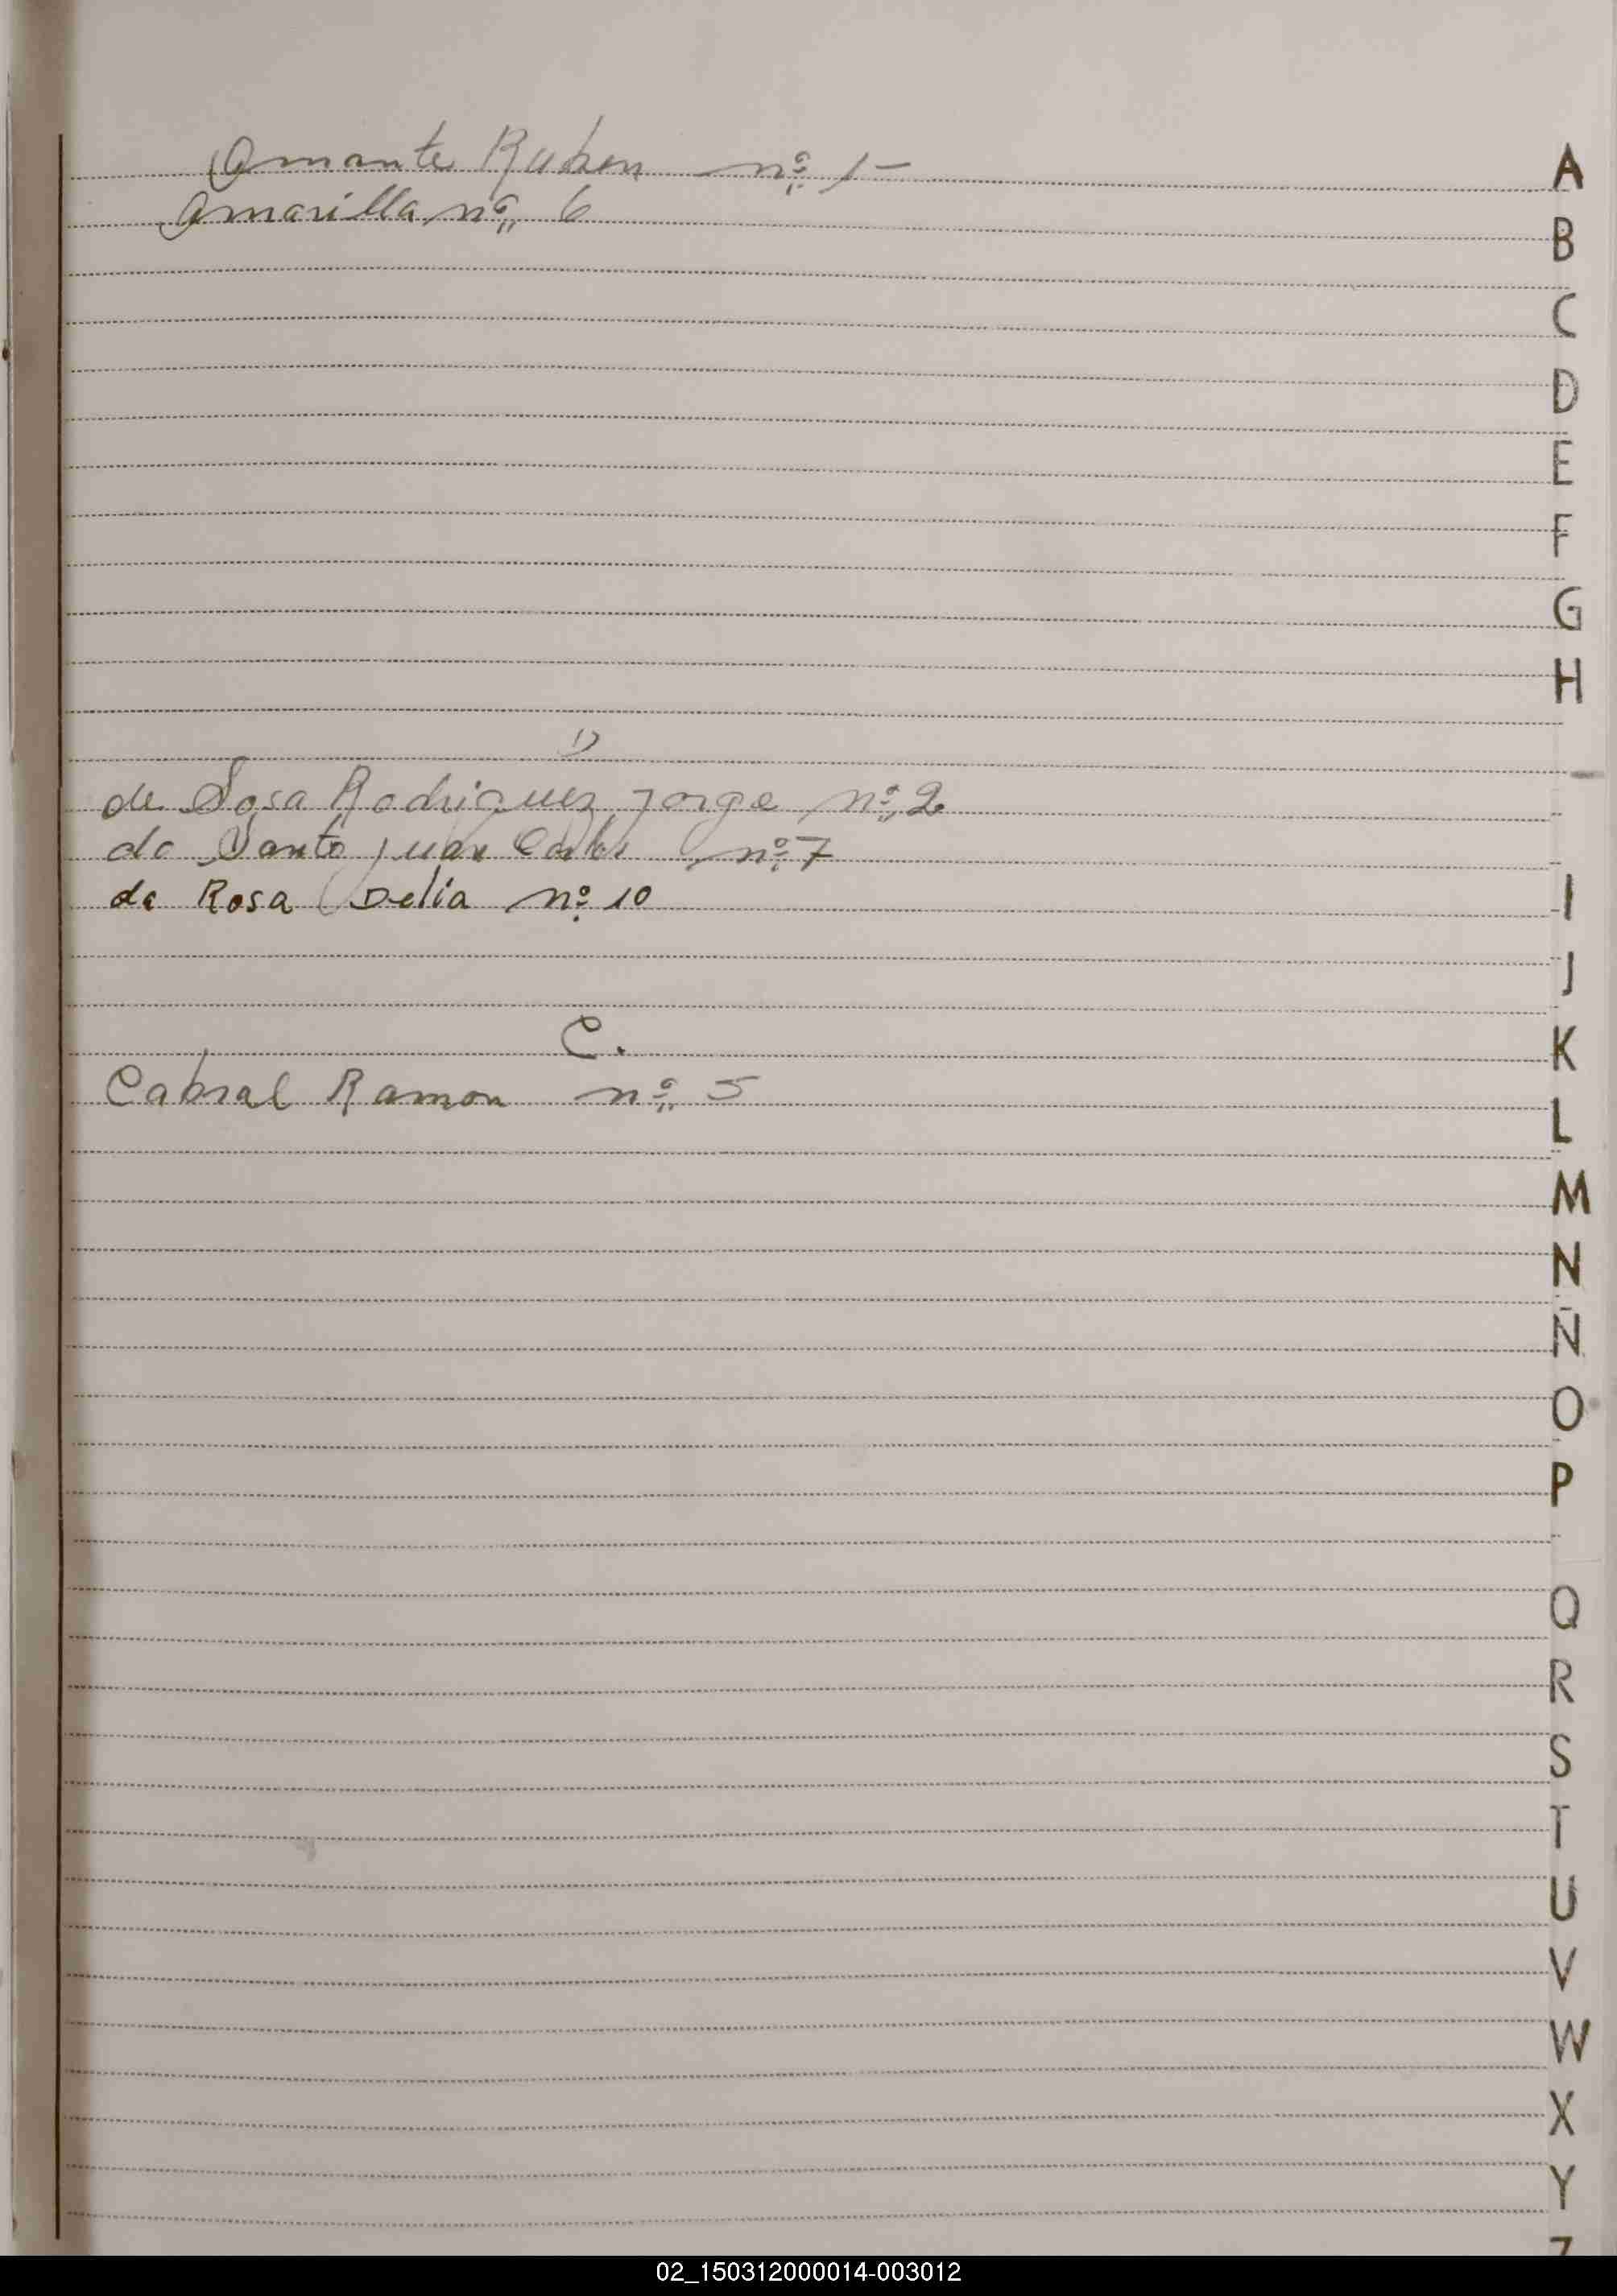 Amante Ruben nº 1-
A
Amarilla nº 6
B
C
D
E
F
G
H
D
de Sosa Rodriguez Jorge nº 2
do Santo Juan Carlos nº 7
da Rosa Delia nº 10
I
J
C.
K
Cabral Ramon nº 5
L
M
N
Ñ
O
P
Q
R
S
T
U
V
W
X
Y
Z
02_150312000014-003012